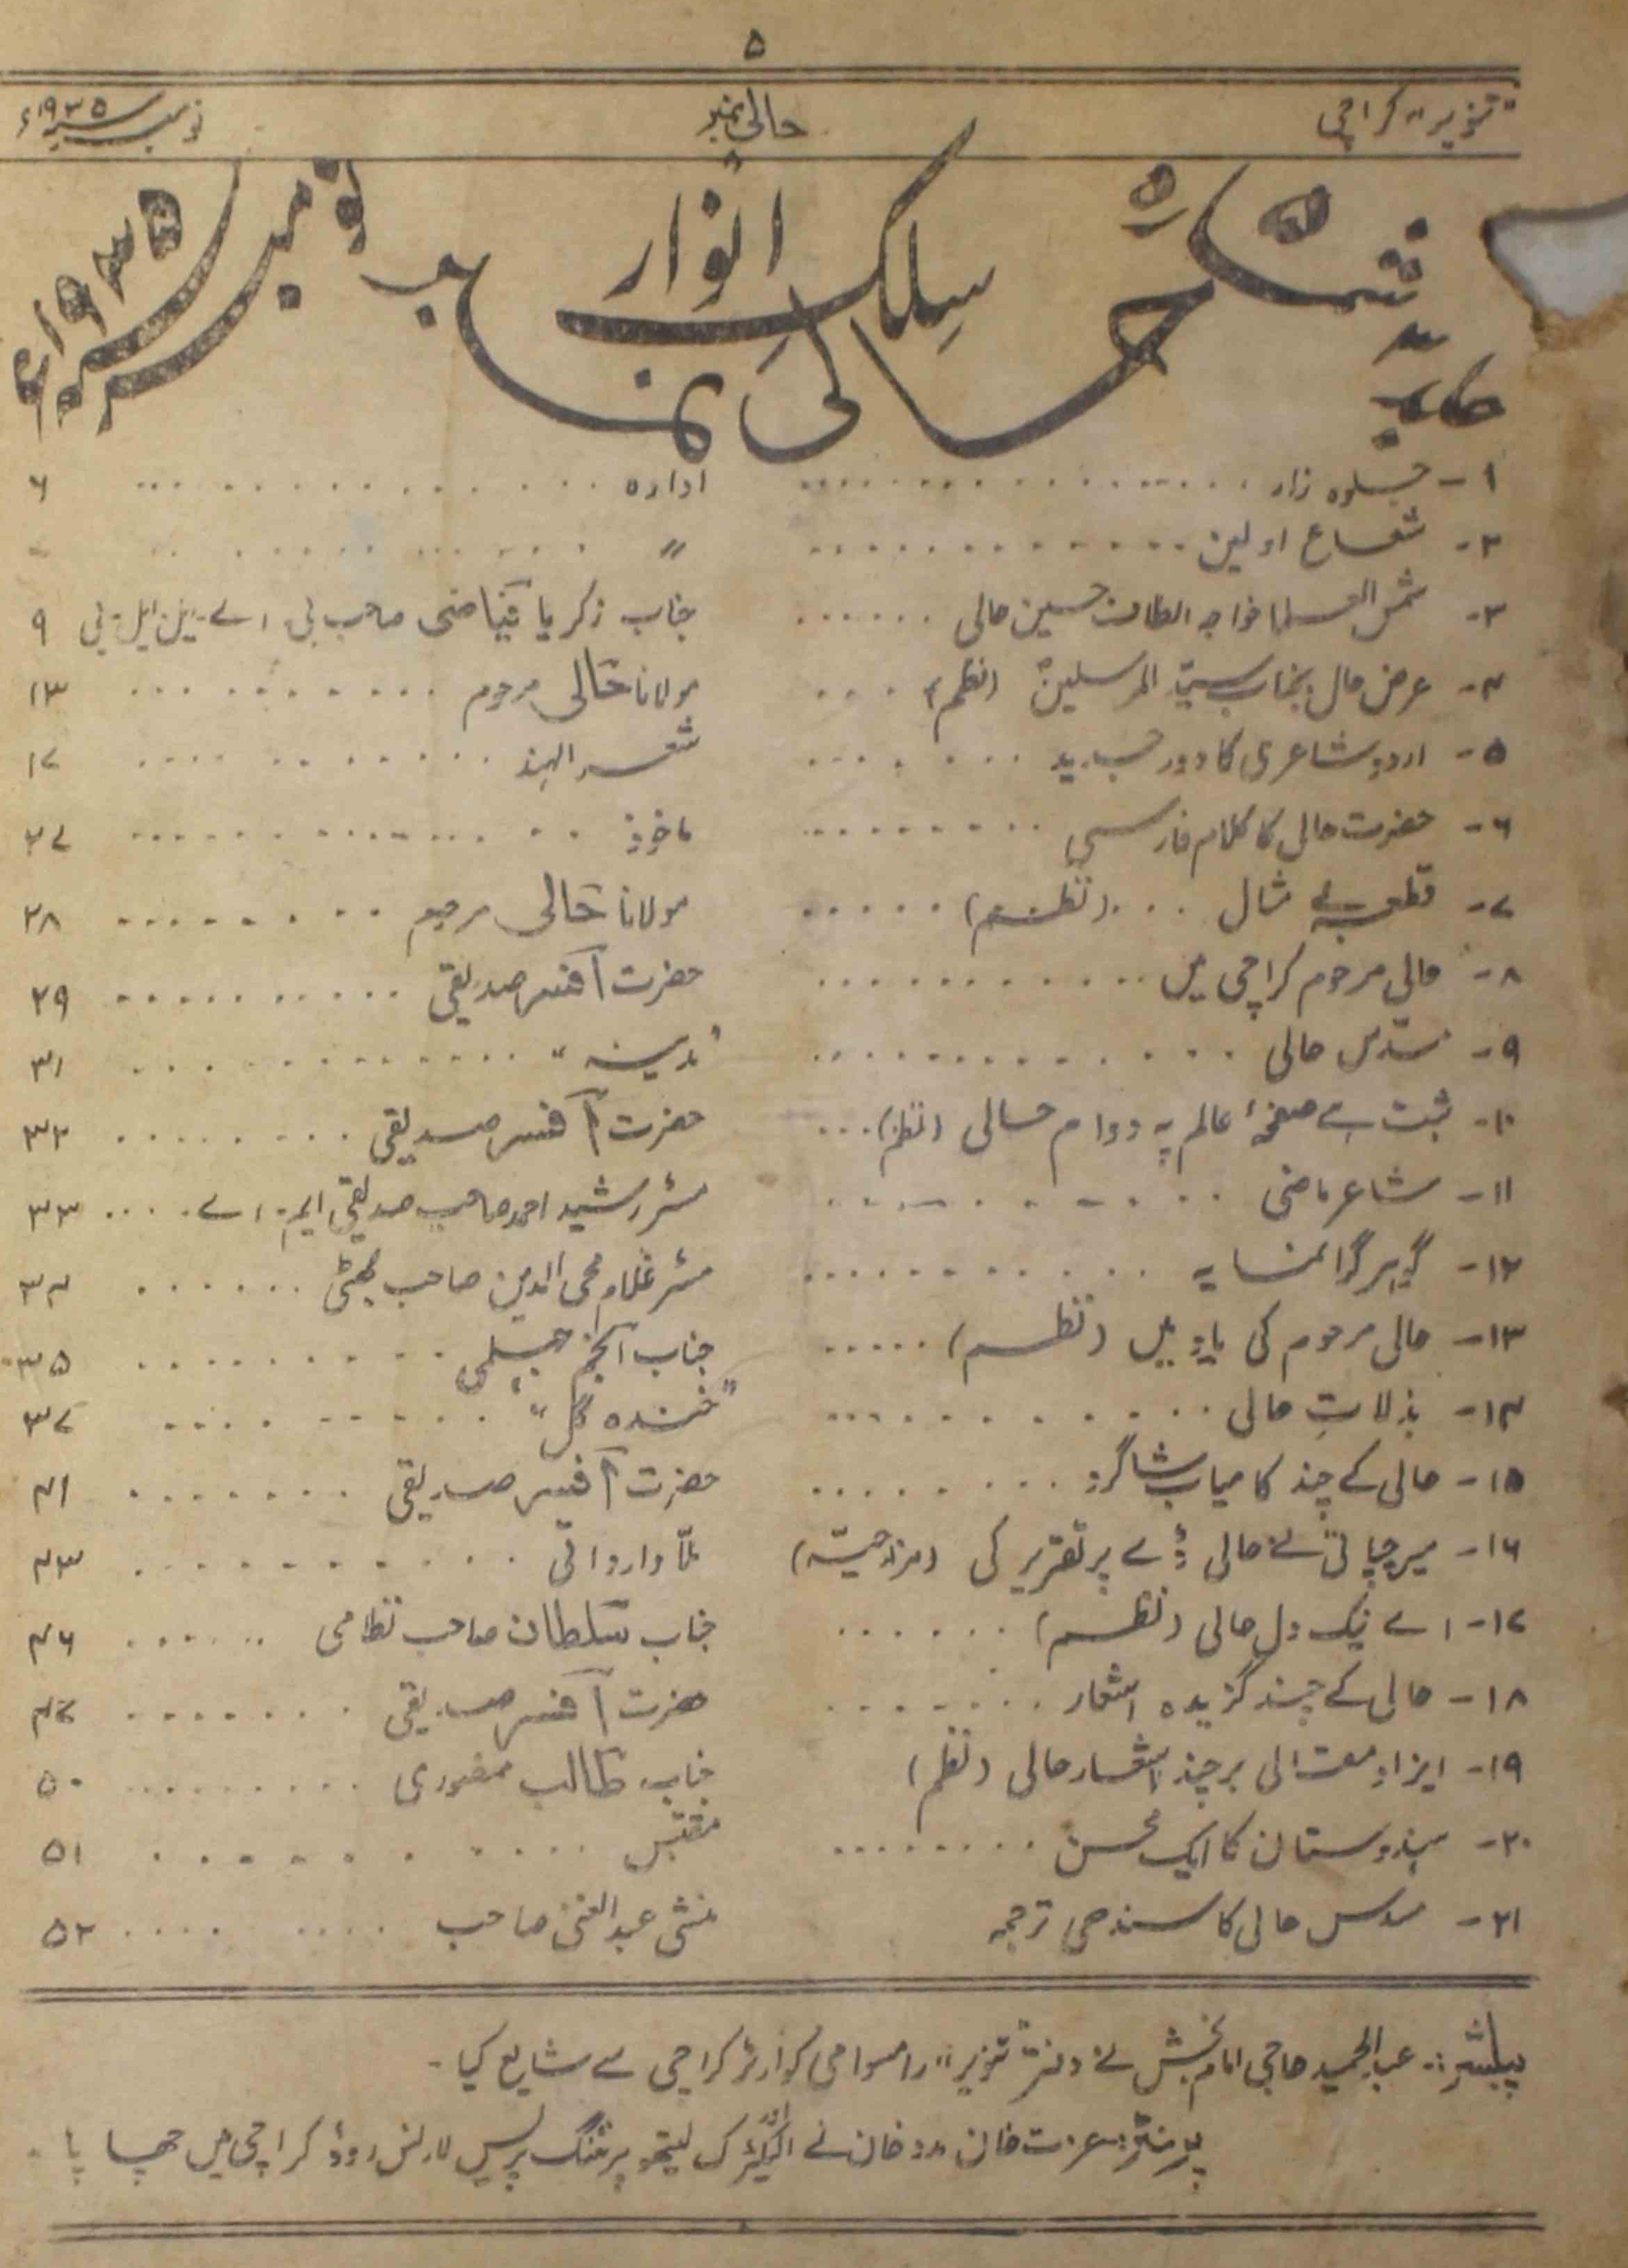 ۵
"تنویر" کراچی حالی نمبر نومبر ۱۹۳۵ء
جلد شمارہ ۵ سلکِ انوار بابت نومبر ۱۹۳۵ء
حالی نمبر
۱- جلوہ زار ادارہ ۶
۲- شعاع اولین 〃
۳- شمس العلما خواجہ الطاف حسین حالی جناب زکریا صاحب بی۔ اے۔ ایل ایل۔ بی ۹
۴- عرض حال بجناب سیّد المرسلینؐ (نظم) مولانا حالی مرحوم ۱۳
۵- اردو شاعری کا دور جدید شعر الہند ۱۷
۶- حضرت حالی کا کلام فارسی ماخوذ ۲۷
۷- قطعہ بے مثال (نظم) مولانا حالی مرحوم ۲۸
۸- حالی مرحوم کراچی میں حضرت آفسر صدیقی ۲۹
۹- مسدّس حالی "مدینہ" ۳۱
۱۰- ثبت ہے صفحۂ عالم پہ دوام حالی (نظم) حضرت آفسر صدیقی ۳۲
۱۱- شاعر ماضی مسٹر رشید احمد صاحب صدیقی ایم۔ اے ۳۳
۱۲- گوہر گرانمایہ مسٹر غلام محی الدین صاحب بھٹی ۳۴
۱۳- حالی مرحوم کی یاد میں (نظم) جناب انجم ۳۵
۱۴- بذلاتِ حالی "خندہ گل" ۳۷
۱۵- حالی کے چند کامیاب شاگرد حضرت آفسر صدیقی ۴۱
۱۶- میر چپاتی نے حالی ڈے پر تقریر کی (مزاحیّہ) ملّا وارواتی ۴۳
۱۷- اے نیک دل حالی (نظم) جناب سلطان صاحب نظامی ۴۶
۱۸- حالی کے چند گزیدہ اشعار حضرت آفسر صدیقی ۴۷
۱۹- ایزادِ معالی بر چند اشعار حالی (نظم) جناب طالب منصوری ۵۰
۲۰- ہندوستان کا ایک محسن مقتبس ۵۱
۲۱- مسدس حالی کا سندھی ترجمہ منشی عبد الغنی صاحب ۵۲
پبلشر:۔ عبد الحمید حاجی امام بخش نے دفتر "تنویر" رامسوامی کوارٹر کراچی سے شایع کیا۔
پرنٹر: عزت خان نے الیکٹرک لیتھو پرنٹنگ پریس لارنس روڈ کراچی میں چھاپا۔